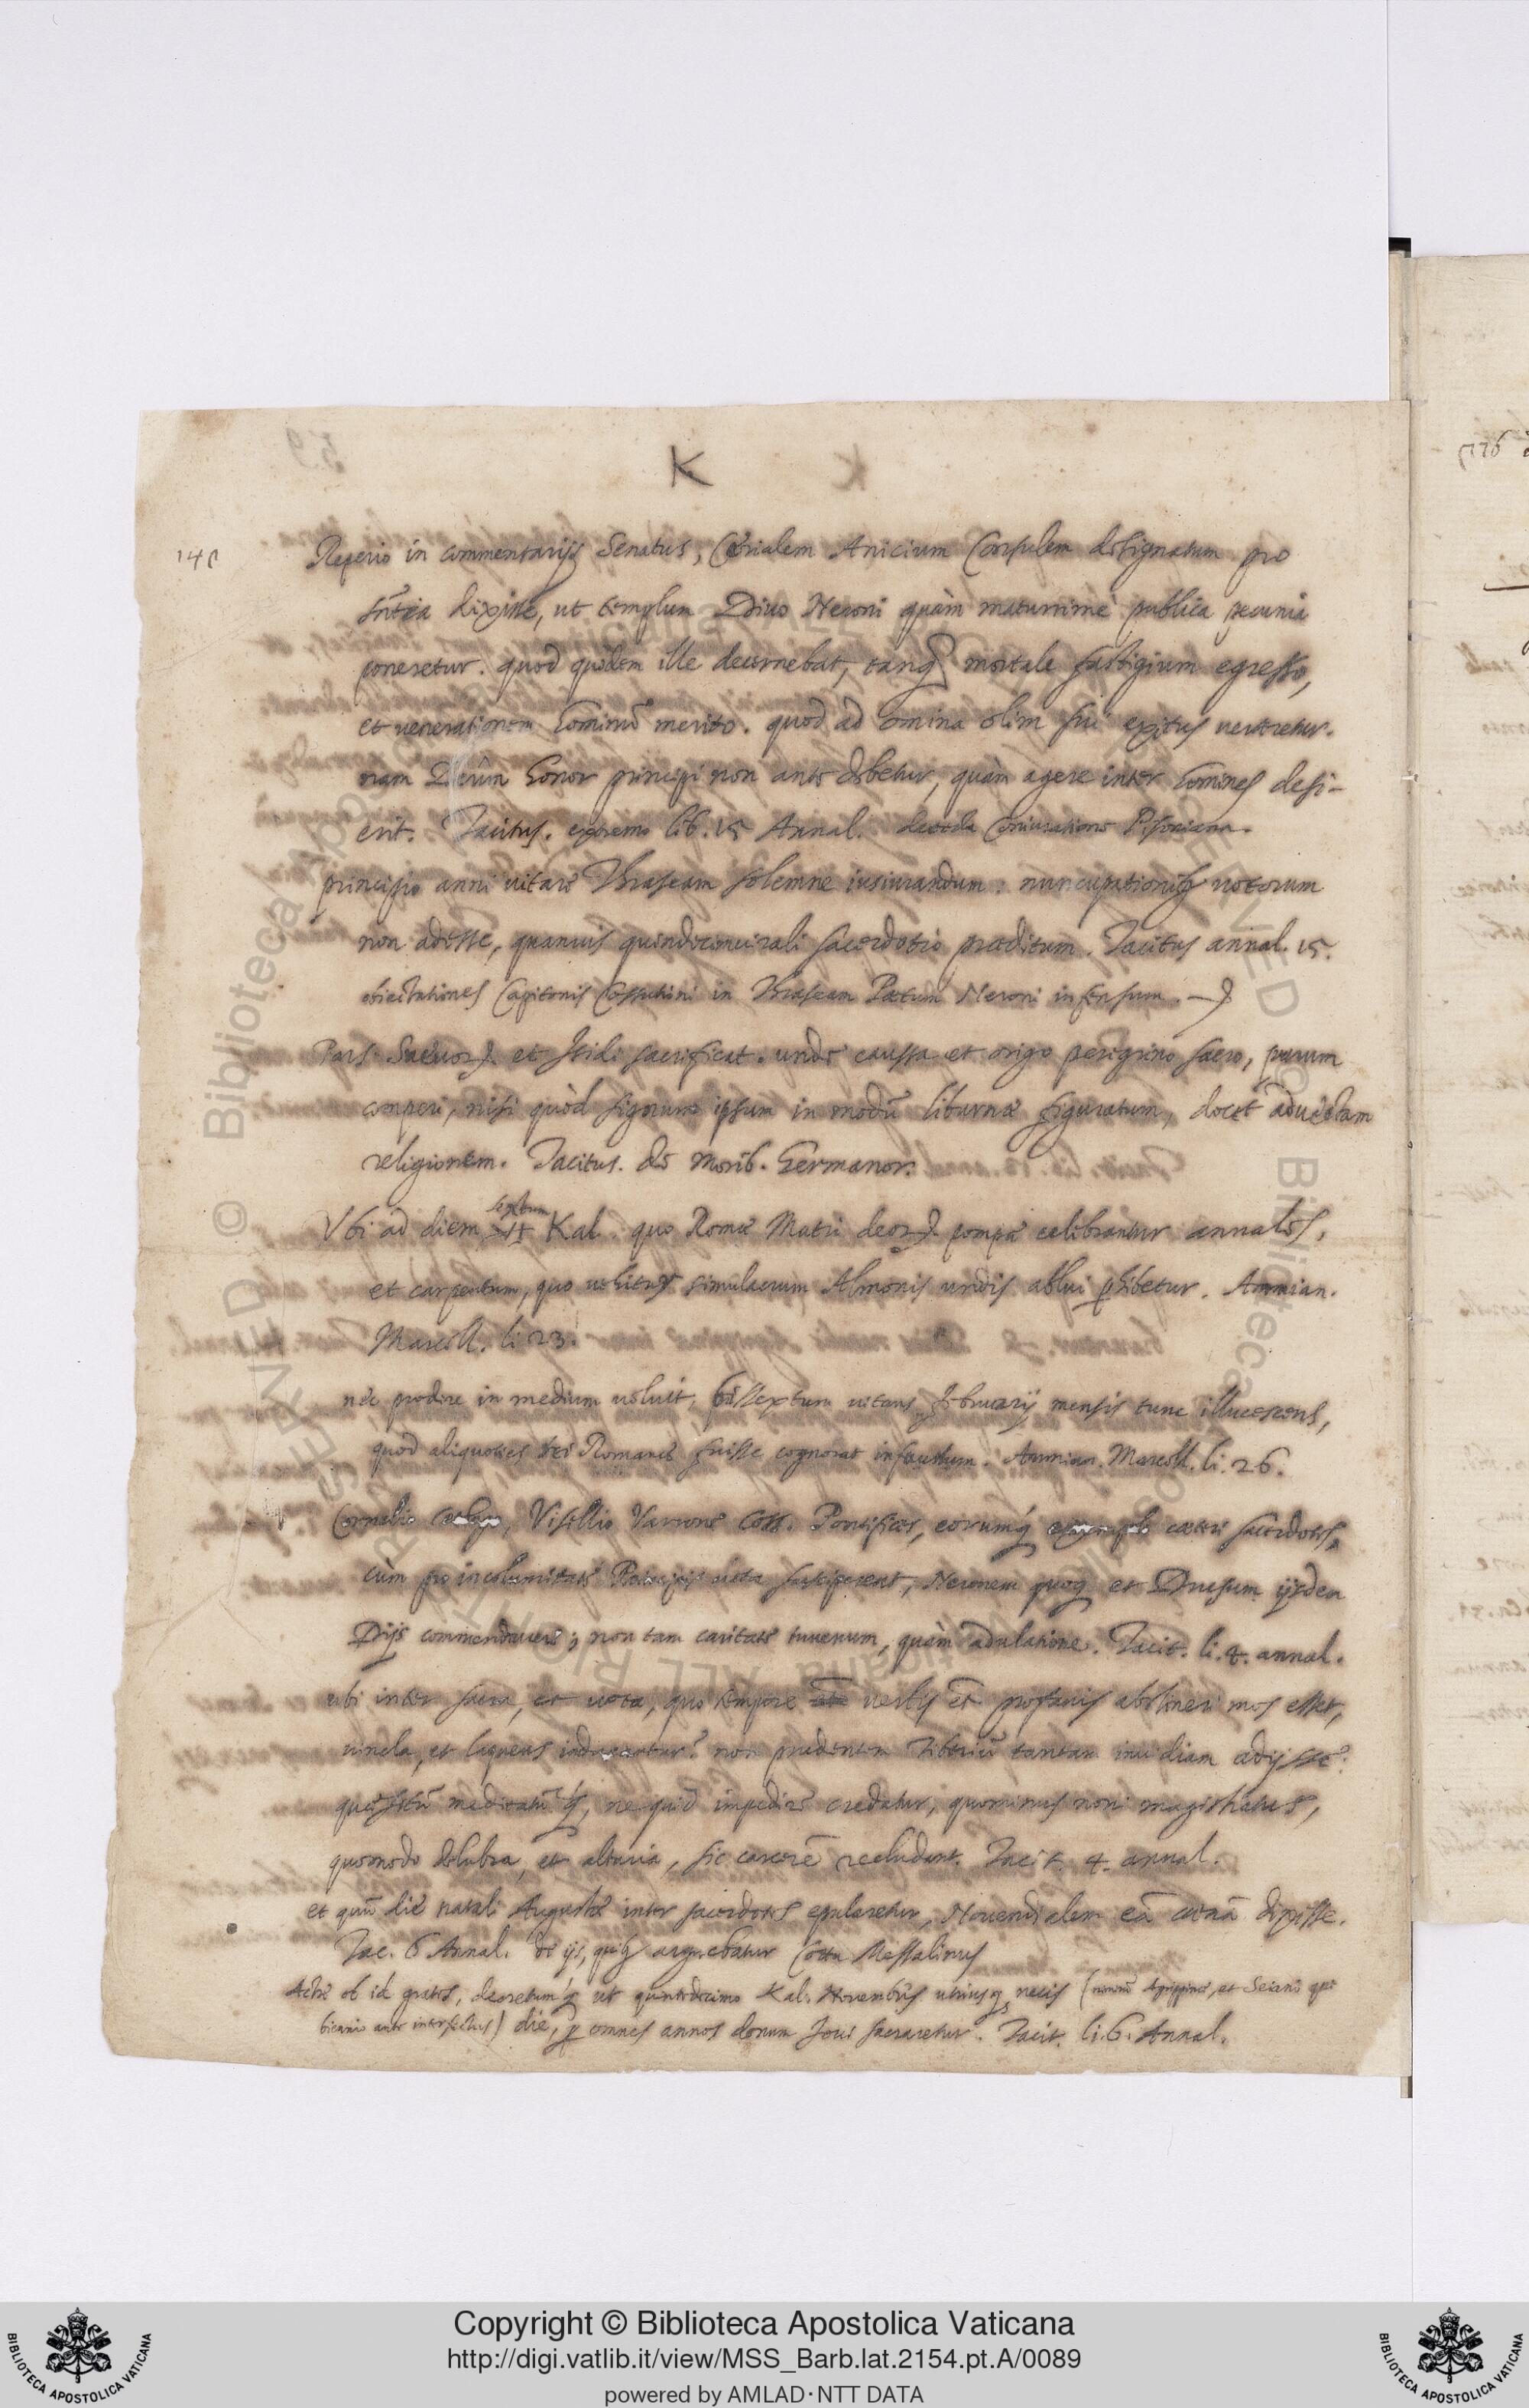 K
Reperio in commentarijs Senatus, Cerialem Anicium Consulem designatum pro
sñtia dixisse, ut templum Diuo Neroni quàm maturrimè publica pecunia
poneretur. quod quidem ille decernebat, tanq mortale fastigium egresso,
et venerationem hominū merito. quod ad omina olim sui exitus verteretur.
nam Deûm honor principi non ante debetur, quàm agere inter homines desi-
erit. Tacitus. extremo lib. 15 Annal. detecta Coniuratione Pisoniana.
principio anni uitare Thraseam solemne iusiurandum: nuncupationibus uotorum
non adesse, quamuis quindecemuirali sacerdotio præditum. Tacitus annal. 15.
obiectationes Capitonis Cossutiani in Thraseam Pætum Neroni infensum.
Pars Sueuorum et Isidi sacrificat. unde caussa et origo peregrino sacro, parum
comperi, nisi quòd signum ipsum in modū liburnæ figuratum, docet aduectam
religionem. Tacitus. de Morib. Germanor.
sextum
Vbi ad diem Kal. quo Romæ Matri deorum pompæ celebrantur annales,
et carpentum, quo uehitur simulacrum Almonis undis ablui phibetur. Ammian.
Marcell. li 23.
nec prodire in medium uoluit, bissextum uitans Februarij mensis tunc illucescens,
quod aliquoties rei Romanæ fuisse cognorat infaustum. Ammian. Marcell. li. 26.
Cornelio Cethego, Visellio Varrone Coss. Pontifices, eorumq́ exemplo cæteri sacerdotes,
cùm pro incolumitate Principis uota susciperent, Neronem quoq et Drusum ijsdem
Dijs commendauere; non tam caritate iuuenum, quàm adulatione. Tacit. li. 4. annal.
ubi inter sacra, et uota, quo tempore uerbis et̄ profanis abstineri mos esset,
uincla, et laqueus inducantur? non prudentem Tiberiū tantam inuidiam adijsse:
quæsitū meditatūq́, ne quid impedire credatur, quominus noui magistratus,
quomodo delubra, et altaria, sic carcerē recludant. Tacit. 4. annal.
et quū die natali Augustæ inter sacerdotes epularetur, Nouendialem eā cœnā dixisse.
Tac. 6 Annal. de ijs, quibus arguebatur Cotta Messalinus
Actæ ob id grates, decretumq́ ut quintodecimo Kal. Novembris utriusq necis (
biennio ante interfectus) die, p omnes annos donum Ioui sacraretur. Tacit. li. 6. Annal.
Copyright © Biblioteca Apostolica Vaticana
http://digi.vatlib.it/view/MSS_Barb.lat.2154.pt.A/0089
powered by AMLAD·NTT DATA